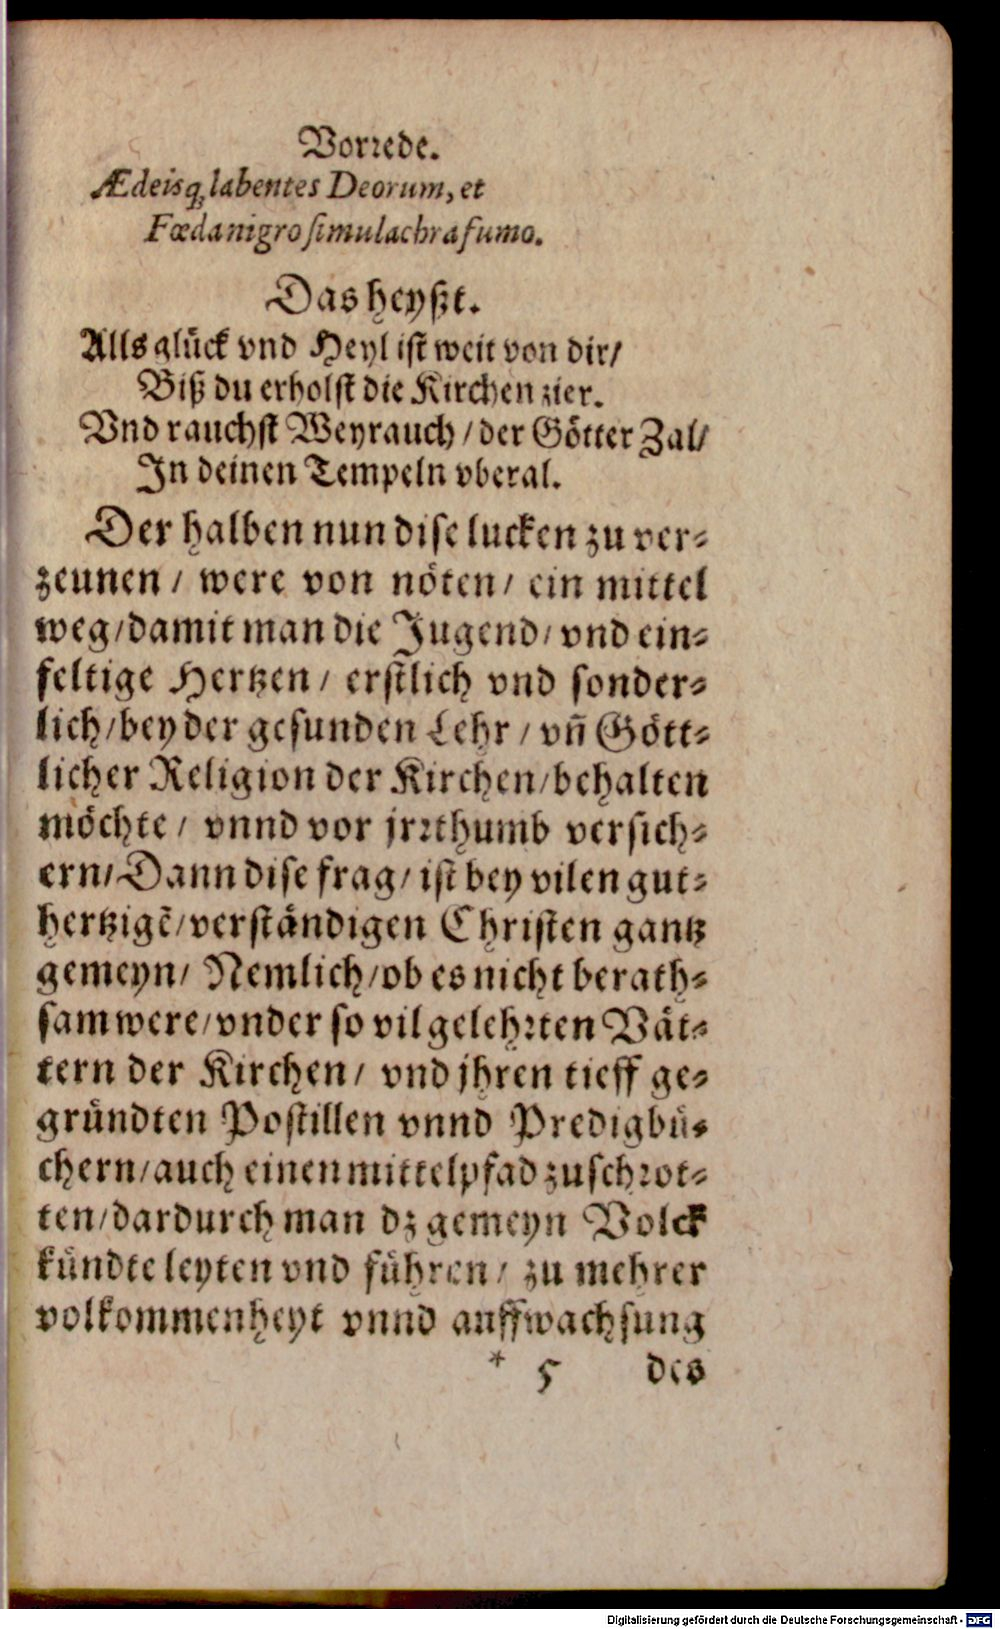 Vorrede.
Ædeisq́; labentes Deorum, et
Fœda nigro simulachra fumo.
Das heyßt.
Alls glück vnd Heyl ist weit von dir/
Biß du erholst die Kirchen zier.
Vnd rauchst Weyrauch / der Götter Zal/
In deinen Tempeln vberal.
Der halben nun dise lucken zu ver⸗
zeunen / were von nöten / ein mittel
weg / damit man die Jugend / vnd ein⸗
feltige Hertzen / erstlich vnd sonder⸗
lich / bey der gesunden Lehr / vñ Gött⸗
licher Religion der Kirchen / behalten
möchte / vnnd vor jrrthumb versich⸗
ern / Dann dise frag / ist bey vilen gut⸗
hertzigē / verständigen Christen gantz
gemeyn / Nemlich / ob es nicht berath⸗
sam were / vnder so vil gelehrten Vät⸗
tern der Kirchen / vnd jhren tieff ge⸗
gründten Postillen vnnd Predigbü⸗
chern / auch einen mittelpfad zuschrot⸗
ten / dardurch man dz gemeyn Volck
kündte leyten vnd führen / zu mehrer
volkommenheyt vnnd auffwachsung
* 5 des
Digitalisierung gefördert durch die Deutsche Forschungsgemeinschaft - DFG